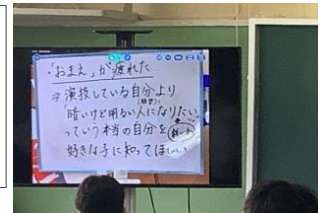 ・「おまえ」が疲れた
→演技している自分より
(根が)
"暗いけど明るい人になりたい
っていう本当の自分を
好きな子に知ってほしい